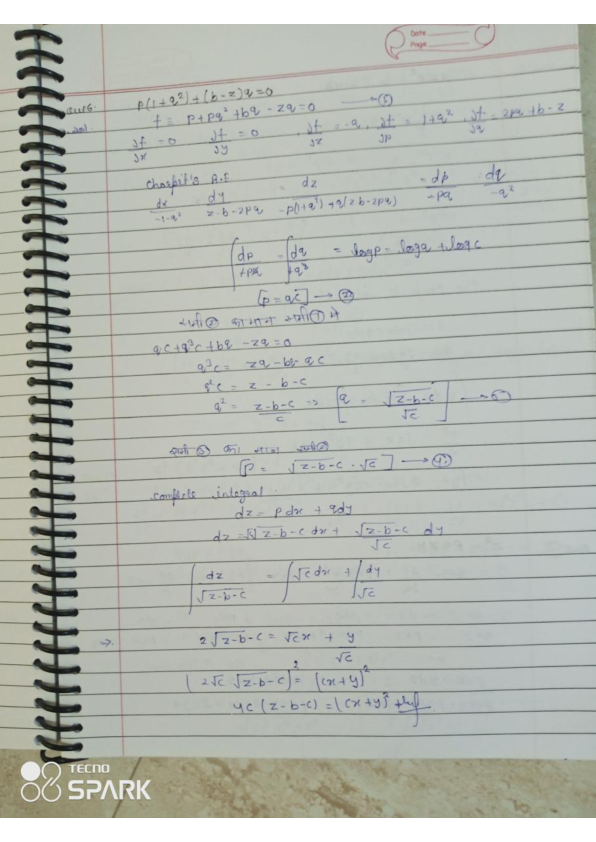 Date
Page
P(1+q²)+(b-z)q=0
sol.
f = P+Pq²+bq-zq=0 —①
∂f/∂x = 0 ∂f/∂y = 0, ∂f/∂z = -q, ∂f/∂p = 1+q², ∂f/∂q = 2pq+b-z
Charpit's A.E
dx/-1-q² = dy/z-b-2pq = dz/-p(1+q²)+q(zb-2pq) = dp/-pq = dq/-q²
= logp = logq + logc
[p = qc] → ②
समी② का मान समी① में
qc+q³c+bq-zq=0
q³c = zq-bq-qc
q²c = z-b-c
q² = z-b-c/c => [q = √z-b-c/√c]
का मान
[p = √z-b-c · √c] →
integral
dz = Pdx + qdy
dz = √c√z-b-c dx + √z-b-c/√c dy
∫dz/√z-b-c = ∫√c dx + ∫dy/√c
2√z-b-c = √c x + y/√c
(2√c √z-b-c)² = (cx+y)²
4c(z-b-c) = (cx+y)²
TECNO
SPARK